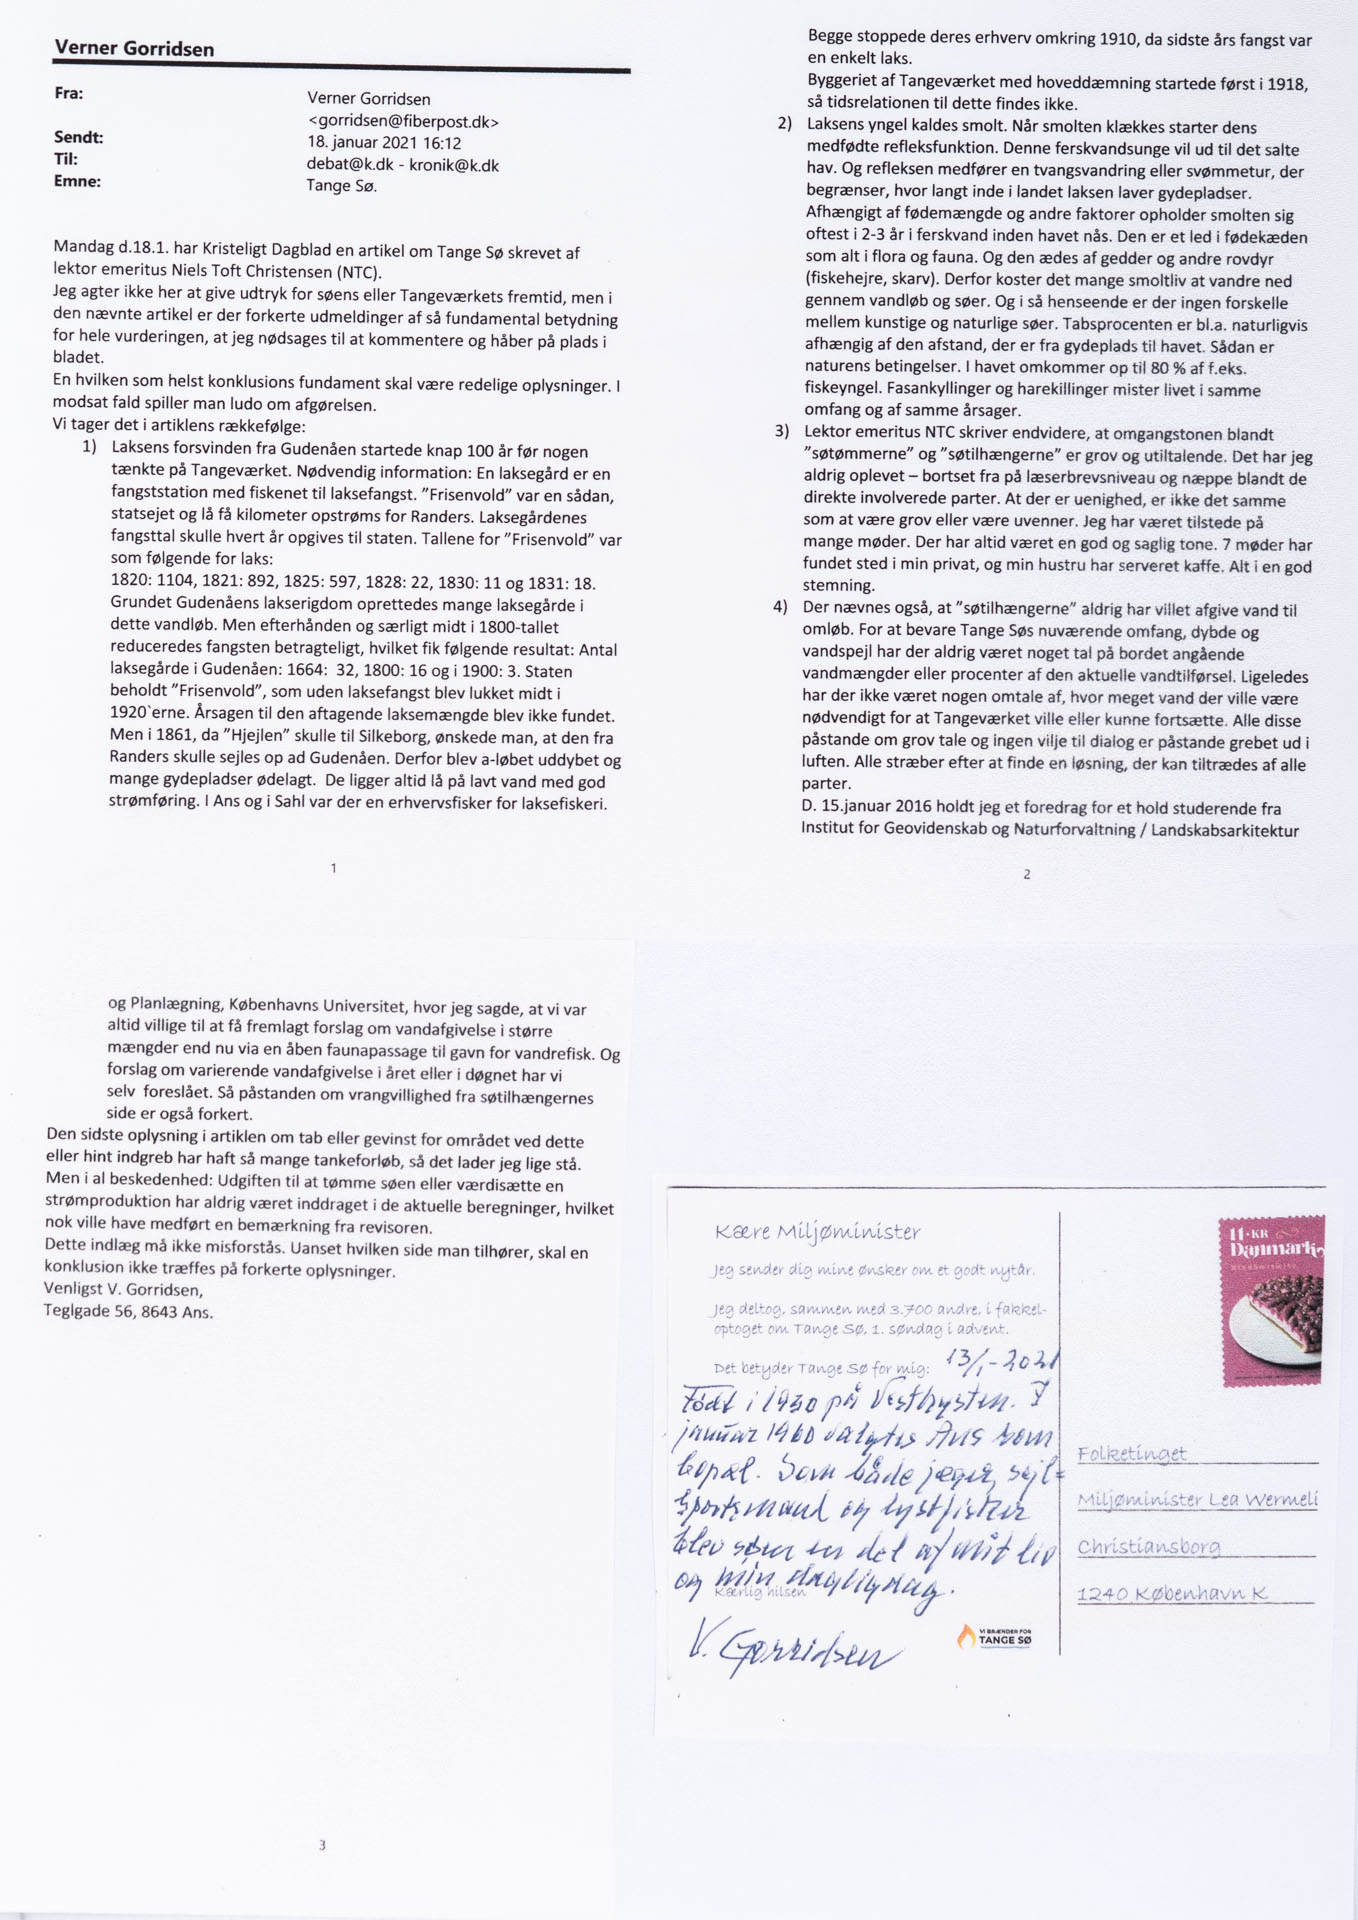 Verner Gorridsen
Fra: Verner Gorridsen
<gorridsen@fiberpost.dk>
Sendt: 18. januar 2021 16:12
Til: debat@k.dk - kronik@k.dk
Emne: Tange Sø.
Mandag d.18.1. har Kristeligt Dagblad en artikel om Tange Sø skrevet af
lektor emeritus Niels Toft Christensen (NTC).
Jeg agter ikke her at give udtryk for søens eller Tangeværkets fremtid, men i
den nævnte artikel er der forkerte udmeldinger af så fundamental betydning
for hele vurderingen, at jeg nødsages til at kommentere og håber på plads i
bladet.
En hvilken som helst konklusions fundament skal være redelige oplysninger. I
modsat fald spiller man ludo om afgørelsen.
Vi tager det i artiklens rækkefølge:
1) Laksens forsvinden fra Gudenåen startede knap 100 år før nogen
tænkte på Tangeværket. Nødvendig information: En laksegård er en
fangststation med fiskenet til laksefangst. ”Frisenvold” var en sådan,
statsejet og lå få kilometer opstrøms for Randers. Laksegårdenes
fangsttal skulle hvert år opgives til staten. Tallene for ”Frisenvold” var
som følgende for laks:
1820: 1104, 1821: 892, 1825: 597, 1828: 22, 1830: 11 og 1831: 18.
Grundet Gudenåens lakserigdom oprettedes mange laksegårde i
dette vandløb. Men efterhånden og særligt midt i 1800-tallet
reduceredes fangsten betragteligt, hvilket fik følgende resultat: Antal
laksegårde i Gudenåen: 1664: 32, 1800: 16 og i 1900: 3. Staten
beholdt ”Frisenvold”, som uden laksefangst blev lukket midt i
1920`erne. Årsagen til den aftagende laksemængde blev ikke fundet.
Men i 1861, da ”Hjejlen” skulle til Silkeborg, ønskede man, at den fra
Randers skulle sejles op ad Gudenåen. Derfor blev a-løbet uddybet og
mange gydepladser ødelagt. De ligger altid lå på lavt vand med god
strømføring. I Ans og i Sahl var der en erhvervsfisker for laksefiskeri.
1
Begge stoppede deres erhverv omkring 1910, da sidste års fangst var
en enkelt laks.
Byggeriet af Tangeværket med hoveddæmning startede først i 1918,
så tidsrelationen til dette findes ikke.
2) Laksens yngel kaldes smolt. Når smolten klækkes starter dens
medfødte refleksfunktion. Denne ferskvandsunge vil ud til det salte
hav. Og refleksen medfører en tvangsvandring eller svømmetur, der
begrænser, hvor langt inde i landet laksen laver gydepladser.
Afhængigt af fødemængde og andre faktorer opholder smolten sig
oftest i 2-3 år i ferskvand inden havet nås. Den er et led i fødekæden
som alt i flora og fauna. Og den ædes af gedder og andre rovdyr
(fiskehejre, skarv). Derfor koster det mange smoltliv at vandre ned
gennem vandløb og søer. Og i så henseende er der ingen forskelle
mellem kunstige og naturlige søer. Tabsprocenten er bl.a. naturligvis
afhængig af den afstand, der er fra gydeplads til havet. Sådan er
naturens betingelser. I havet omkommer op til 80 % af f.eks.
fiskeyngel. Fasankyllinger og harekillinger mister livet i samme
omfang og af samme årsager.
3) Lektor emeritus NTC skriver endvidere, at omgangstonen blandt
”søtømmerne” og ”søtilhængerne” er grov og utiltalende. Det har jeg
aldrig oplevet – bortset fra på læserbrevsniveau og næppe blandt de
direkte involverede parter. At der er uenighed, er ikke det samme
som at være grov eller være uvenner. Jeg har været tilstede på
mange møder. Der har altid været en god og saglig tone. 7 møder har
fundet sted i min privat, og min hustru har serveret kaffe. Alt i en god
stemning.
4) Der nævnes også, at ”søtilhængerne” aldrig har villet afgive vand til
omløb. For at bevare Tange Søs nuværende omfang, dybde og
vandspejl har der aldrig været noget tal på bordet angående
vandmængder eller procenter af den aktuelle vandtilførsel. Ligeledes
har der ikke været nogen omtale af, hvor meget vand der ville være
nødvendigt for at Tangeværket ville eller kunne fortsætte. Alle disse
påstande om grov tale og ingen vilje til dialog er påstande grebet ud i
luften. Alle stræber efter at finde en løsning, der kan tiltrædes af alle
parter.
D. 15.januar 2016 holdt jeg et foredrag for et hold studerende fra
Institut for Geovidenskab og Naturforvaltning / Landskabsarkitektur
2
og Planlægning, Københavns Universitet, hvor jeg sagde, at vi var
altid villige til at få fremlagt forslag om vandafgivelse i større
mængder end nu via en åben faunapassage til gavn for vandrefisk. Og
forslag om varierende vandafgivelse i året eller i døgnet har vi
selv foreslået. Så påstanden om vrangvillighed fra søtilhængernes
side er også forkert.
Den sidste oplysning i artiklen om tab eller gevinst for området ved dette
eller hint indgreb har haft så mange tankeforløb, så det lader jeg lige stå.
Men i al beskedenhed: Udgiften til at tømme søen eller værdisætte en
strømproduktion har aldrig været inddraget i de aktuelle beregninger, hvilket
nok ville have medført en bemærkning fra revisoren.
Dette indlæg må ikke misforstås. Uanset hvilken side man tilhører, skal en
konklusion ikke træffes på forkerte oplysninger.
Venligst V. Gorridsen,
Teglgade 56, 8643 Ans.
3
Kære Miljøminister
Jeg sender dig mine ønsker om et godt nytår.
Jeg deltog, sammen med 3.700 andre, i fakkel-
optoget om Tange Sø, 1. søndag i advent.
Det betyder Tange Sø for mig: 13/1-2021
Født i 1930 på Vestkysten. I
januar 1960 valgtes Ans som
bopæl. Som både jæger, sejl=
sportsmand og lystfisker
blev søen en del af mit liv
og min dagligdag.
Kærlig hilsen
V. Gorridsen
VI BRÆNDER FOR
TANGE SØ
11·KR
Danmark
Folketinget
Miljøminister Lea Wermeli
Christiansborg
1240 København K